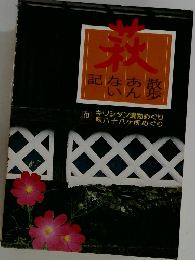 萩
散歩
あんない
記
付 キリシタン遺跡めぐり
萩八十八ケ所めぐり